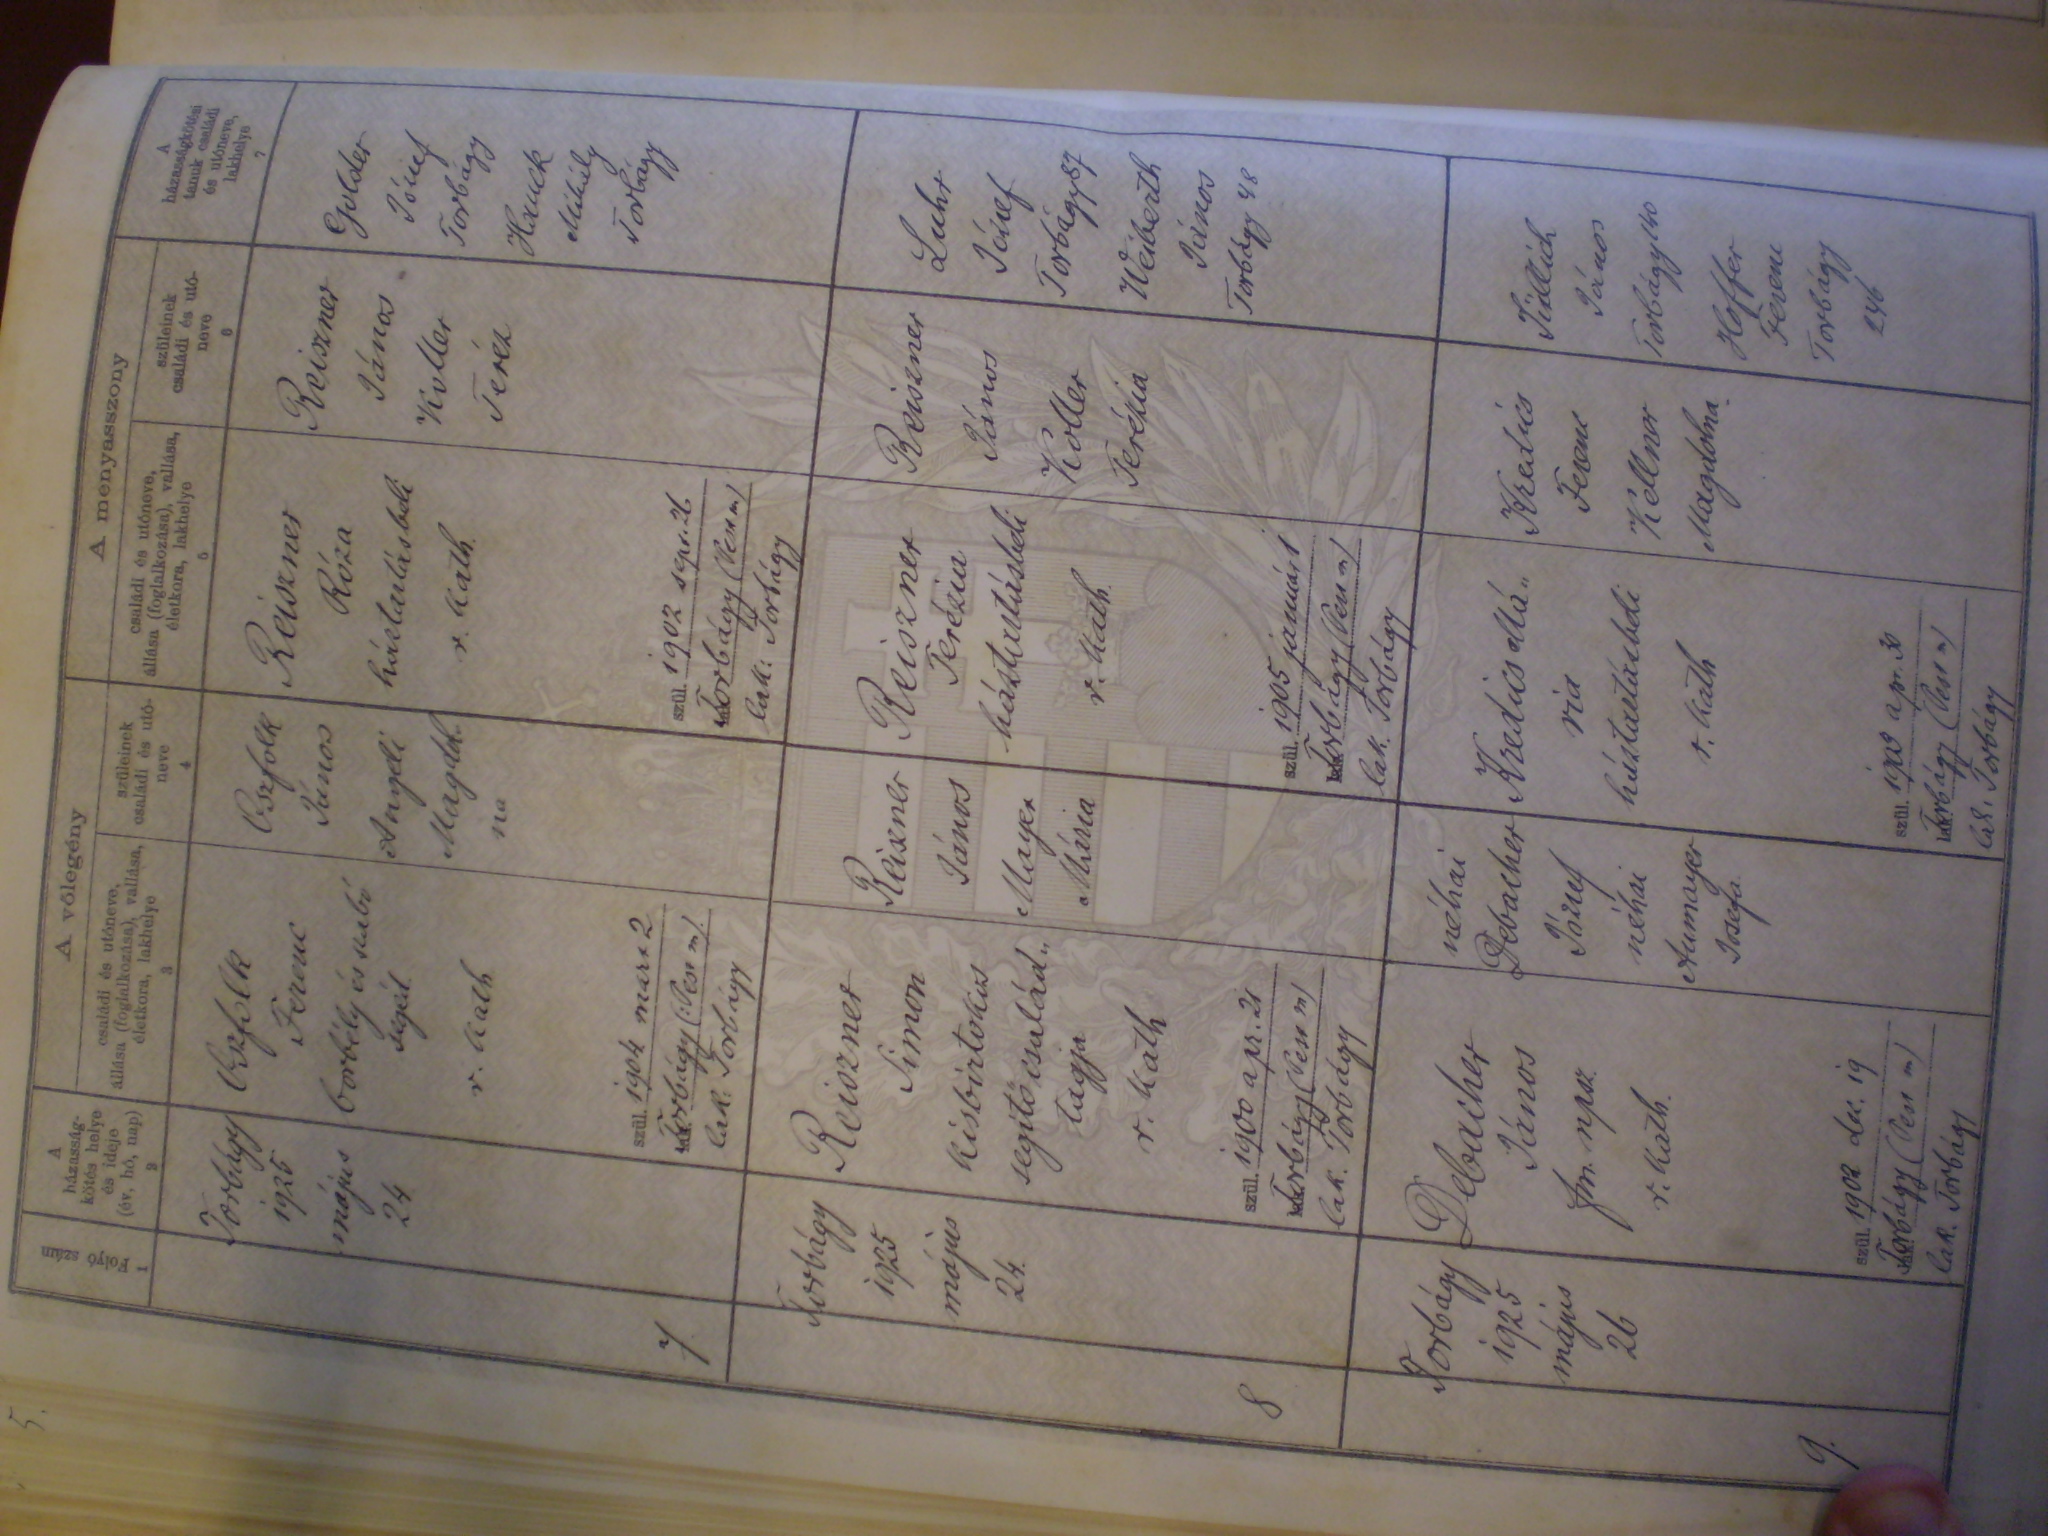 5.
1
Folyó szám
A
házasság-
kötés helye
és ideje
(év, hó, nap)
2
A vőlegény
családi és utóneve,
állása (foglalkozása), vallása,
életkora, lakhelye
3
szüleinek
családi és utó-
neve
4
A menyasszony
családi és utóneve,
állása (foglalkozása), vallása,
életkora, lakhelye
5
szüleinek
családi és utó-
neve
6
A
házasságkötési
tanuk családi
és utóneve,
lakhelye
7
7.
Torbágy
1925
május
24
Oszfolk
Ferenc
borbély és szabó
segéd
r. kath
szül. 1904 marz 2
Torbágy (Pest m).
lak: Torbágy
Oszfolk
János
Angeli
Magdol
na
Reiszner
Róza
háztartásbeli
r. kath.
szül. 1902 sept. 26
Torbágy (Pest m)
lak: Torbágy
Reiszner
János
Koller
Teréz
Golder
József
Torbágy
Hauck
Mihály
Torbágy
8
Torbágy
1925
május
24.
Reiszner
Simon
kisbirtokis
segítő család„
tagja
r. kath
szül. 1900 apr. 21
Torbágy (Pest m)
lak. Torbágy
Reiszner
János
Mayer
Mária
Reiszner
Terézia
háztartásbeli
r. kath.
szül. 1905 január 1
Torbágy (Pest m)
lak. Torbágy
Reiszner
János
Koller
Terézia
Luhr
József
Torbágy 87
Weiberth
János
Torbágy 48
9.
Torbágy
1925
május
26
Debaiher
János
fm. npsz.
r. kath.
szül. 1902 dec. 19
Torbágy (Pest m)
lak. Torbágy
néhai
Debaiher
József
néhai
Aumayer
Josefa
Kredics Má„
ria
háztartásbeli
r. kath
szül. 1903 apr. 30
Torbágy (Pest m)
lak. Torbágy
Kredics
Ferenc
Kellner
Magdolna.
János
Hoffer
Ferenc
Torbágy
246